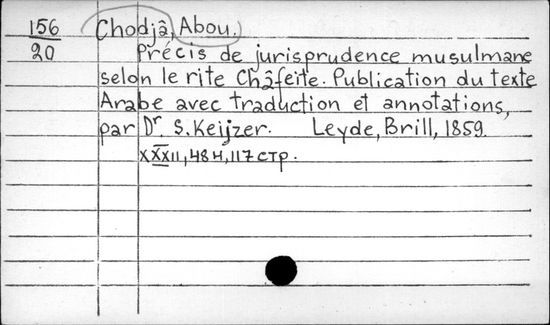 156 Chodjâ, Abou.
20 Précis de jurisprudence musulmane
selon le rite Châfeite. Publication du texte
Arabe avec traduction et annotations,
par Dr. S. Keijzer. Leyde, Brill, 1859.
XXXII, 48 н, 117 стр.